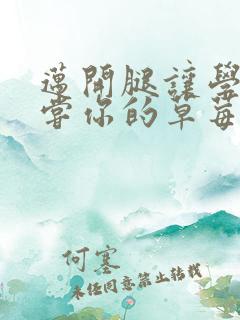 邁開腿讓學
嘗你的草莓
何塞
未經同意禁止轉載